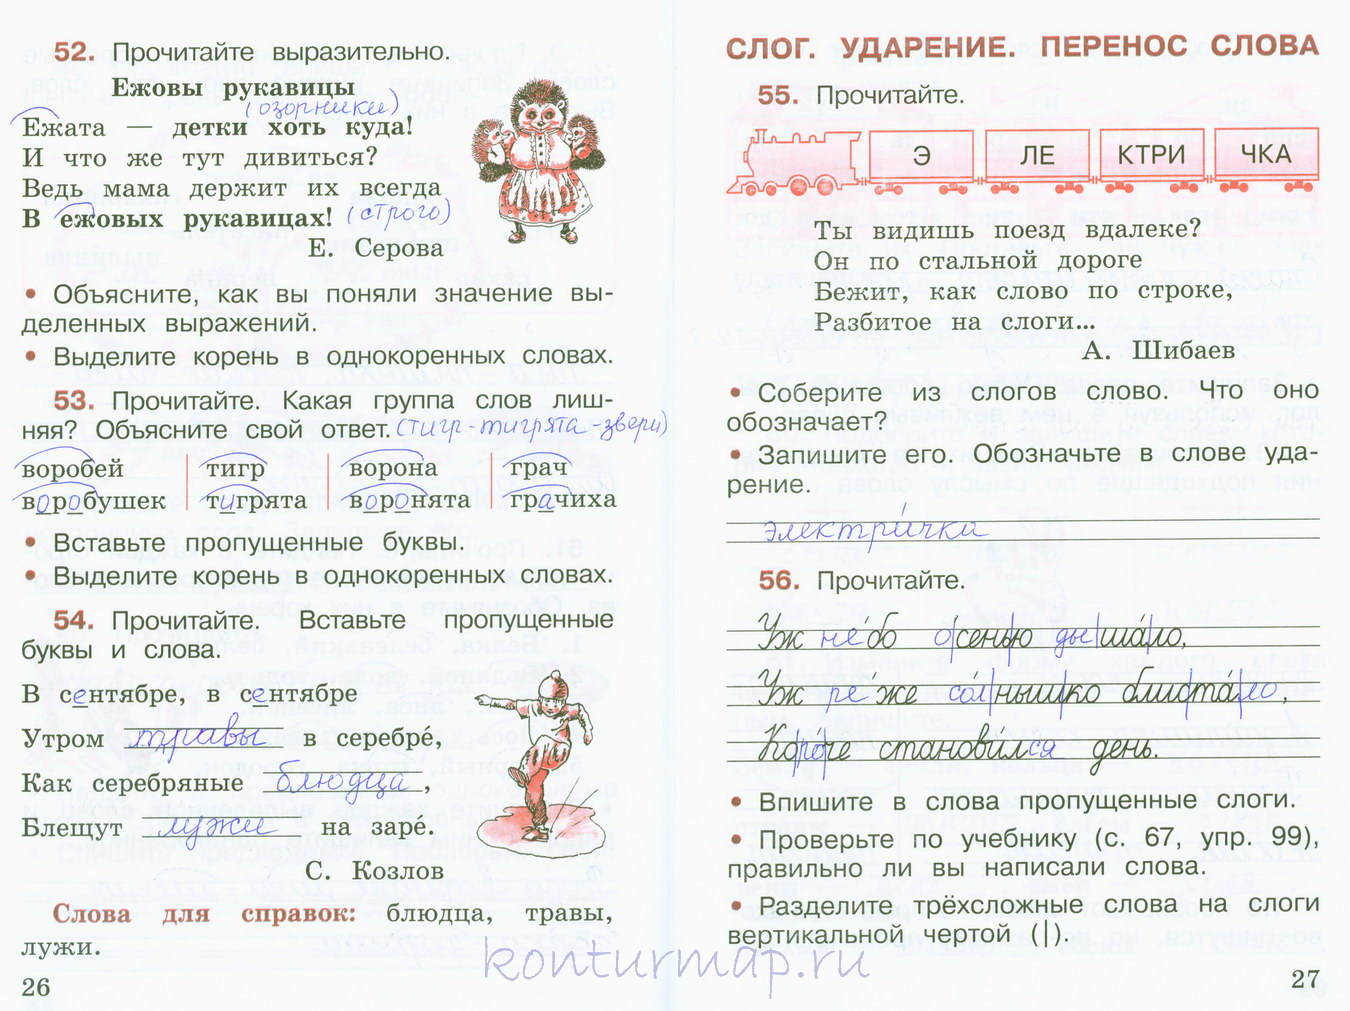 52. Прочитайте выразительно.
Ежовы рукавицы
(озорники)
Ежата — детки хоть куда!
И что же тут дивиться?
Ведь мама держит их всегда
В ежовых рукавицах! (строго)
Е. Серова
• Объясните, как вы поняли значение вы-
деленных выражений.
• Выделите корень в однокоренных словах.
53. Прочитайте. Какая группа слов лиш-
няя? Объясните свой ответ. (тигр-тигрята-звери)
воробей тигр ворона грач
воробушек тигрята воронята грачиха
• Вставьте пропущенные буквы.
• Выделите корень в однокоренных словах.
54. Прочитайте. Вставьте пропущенные
буквы и слова.
В сентябре, в сентябре
Утром травы в серебре́,
Как серебряные блюдца,
Блещут лужи на заре́.
С. Козлов
Слова для справок: блюдца, травы,
лужи.
26
СЛОГ. УДАРЕНИЕ. ПЕРЕНОС СЛОВА
55. Прочитайте.
Э ЛЕ КТРИ ЧКА
Ты видишь поезд вдалеке?
Он по стальной дороге
Бежит, как слово по строке,
Разбитое на слоги...
А. Шибаев
• Соберите из слогов слово. Что оно
обозначает?
• Запишите его. Обозначьте в слове уда-
рение.
электри́чка
56. Прочитайте.
Уж не́бо о|сенью ды|ша́|ло,
Уж ре́же со́л|ныш|ко блиста́ло,
Ко|ро́|че становился день
• Впишите в слова пропущенные слоги.
• Проверьте по учебнику (с. 67, упр. 99),
правильно ли вы написали слова.
• Разделите трёхсложные слова на слоги
вертикальной чертой (|).
27
konturmap.ru